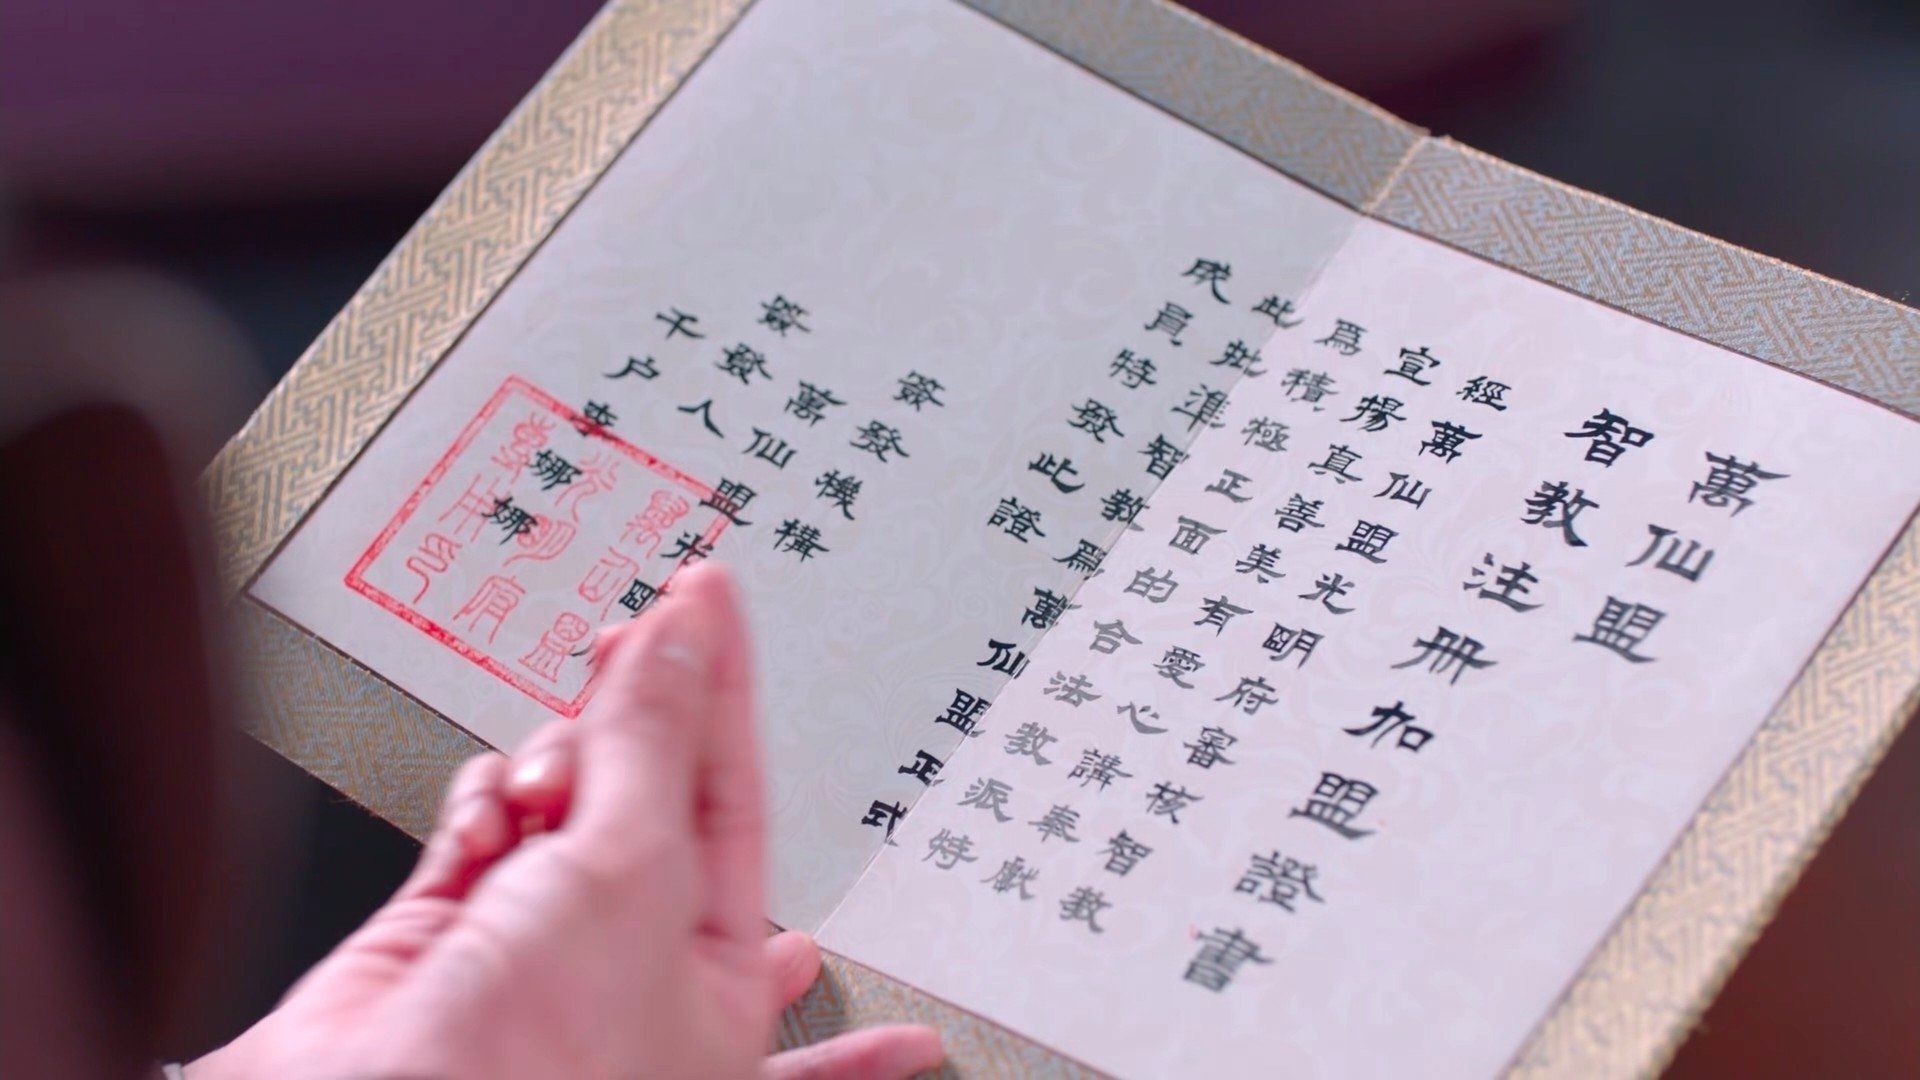 萬仙盟
智教注册加盟證書
經萬仙盟光明府審核智教
宣揚真善美有愛心講奉獻
爲積極正面的合法教派特
此批準智教爲萬仙盟正式
成員特發此證
簽發機構
萬仙盟光明
簽發人
千户李娜娜
萬仙盟
光明府
用印